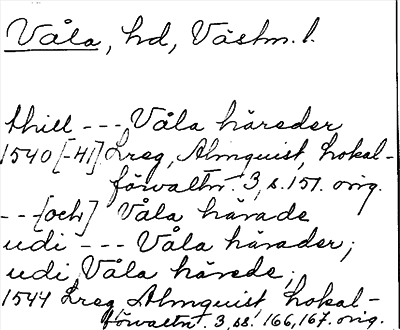 Våla, hd, Västm. l.
thill --- Våla häreder
1540 [-41] Lreg, Almquist, Lokal-
förvaltn. 3, s. 151. orig.
--[och] Våla härade
udi --- Våla härader;
udi Våla härede;
1544 Lreg Almquist, Lokal-
förvaltn. 3, ss. 166, 167. orig.